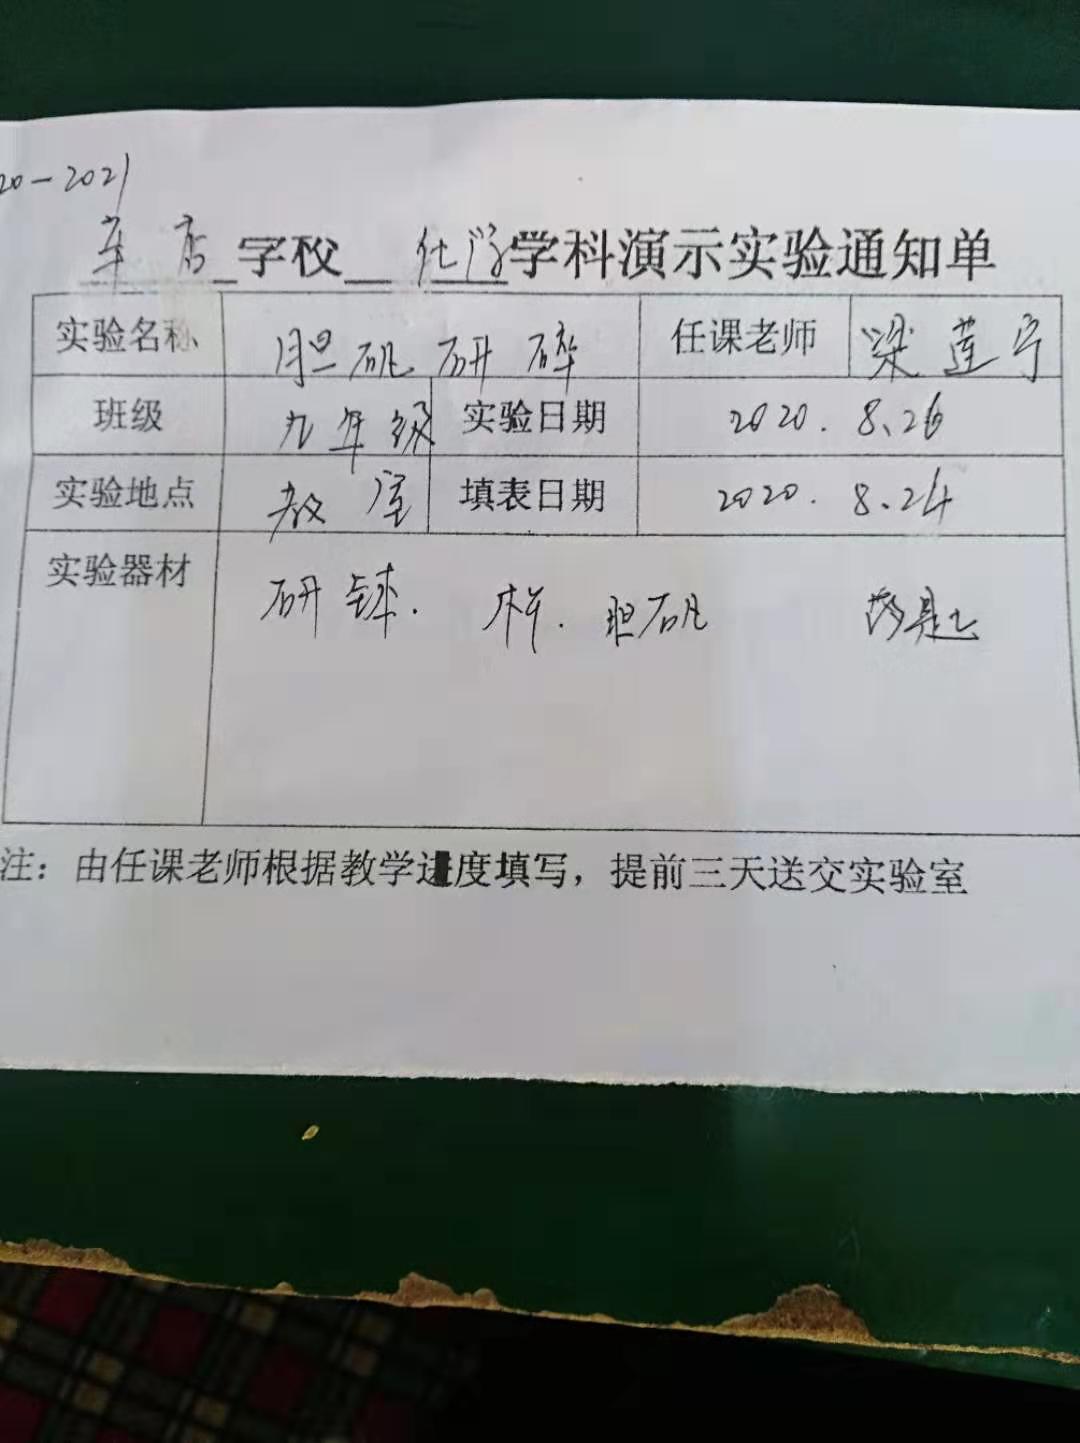 20-2021
车店 学校 化学 学科演示实验通知单
实验名称 胆矾研碎 任课老师 梁莲宁
班级 九年级 实验日期 2020.8.26
实验地点 教室 填表日期 2020.8.24
实验器材 研钵. 杵. 胆矾
注：由任课老师根据教学进度填写，提前三天送交实验室